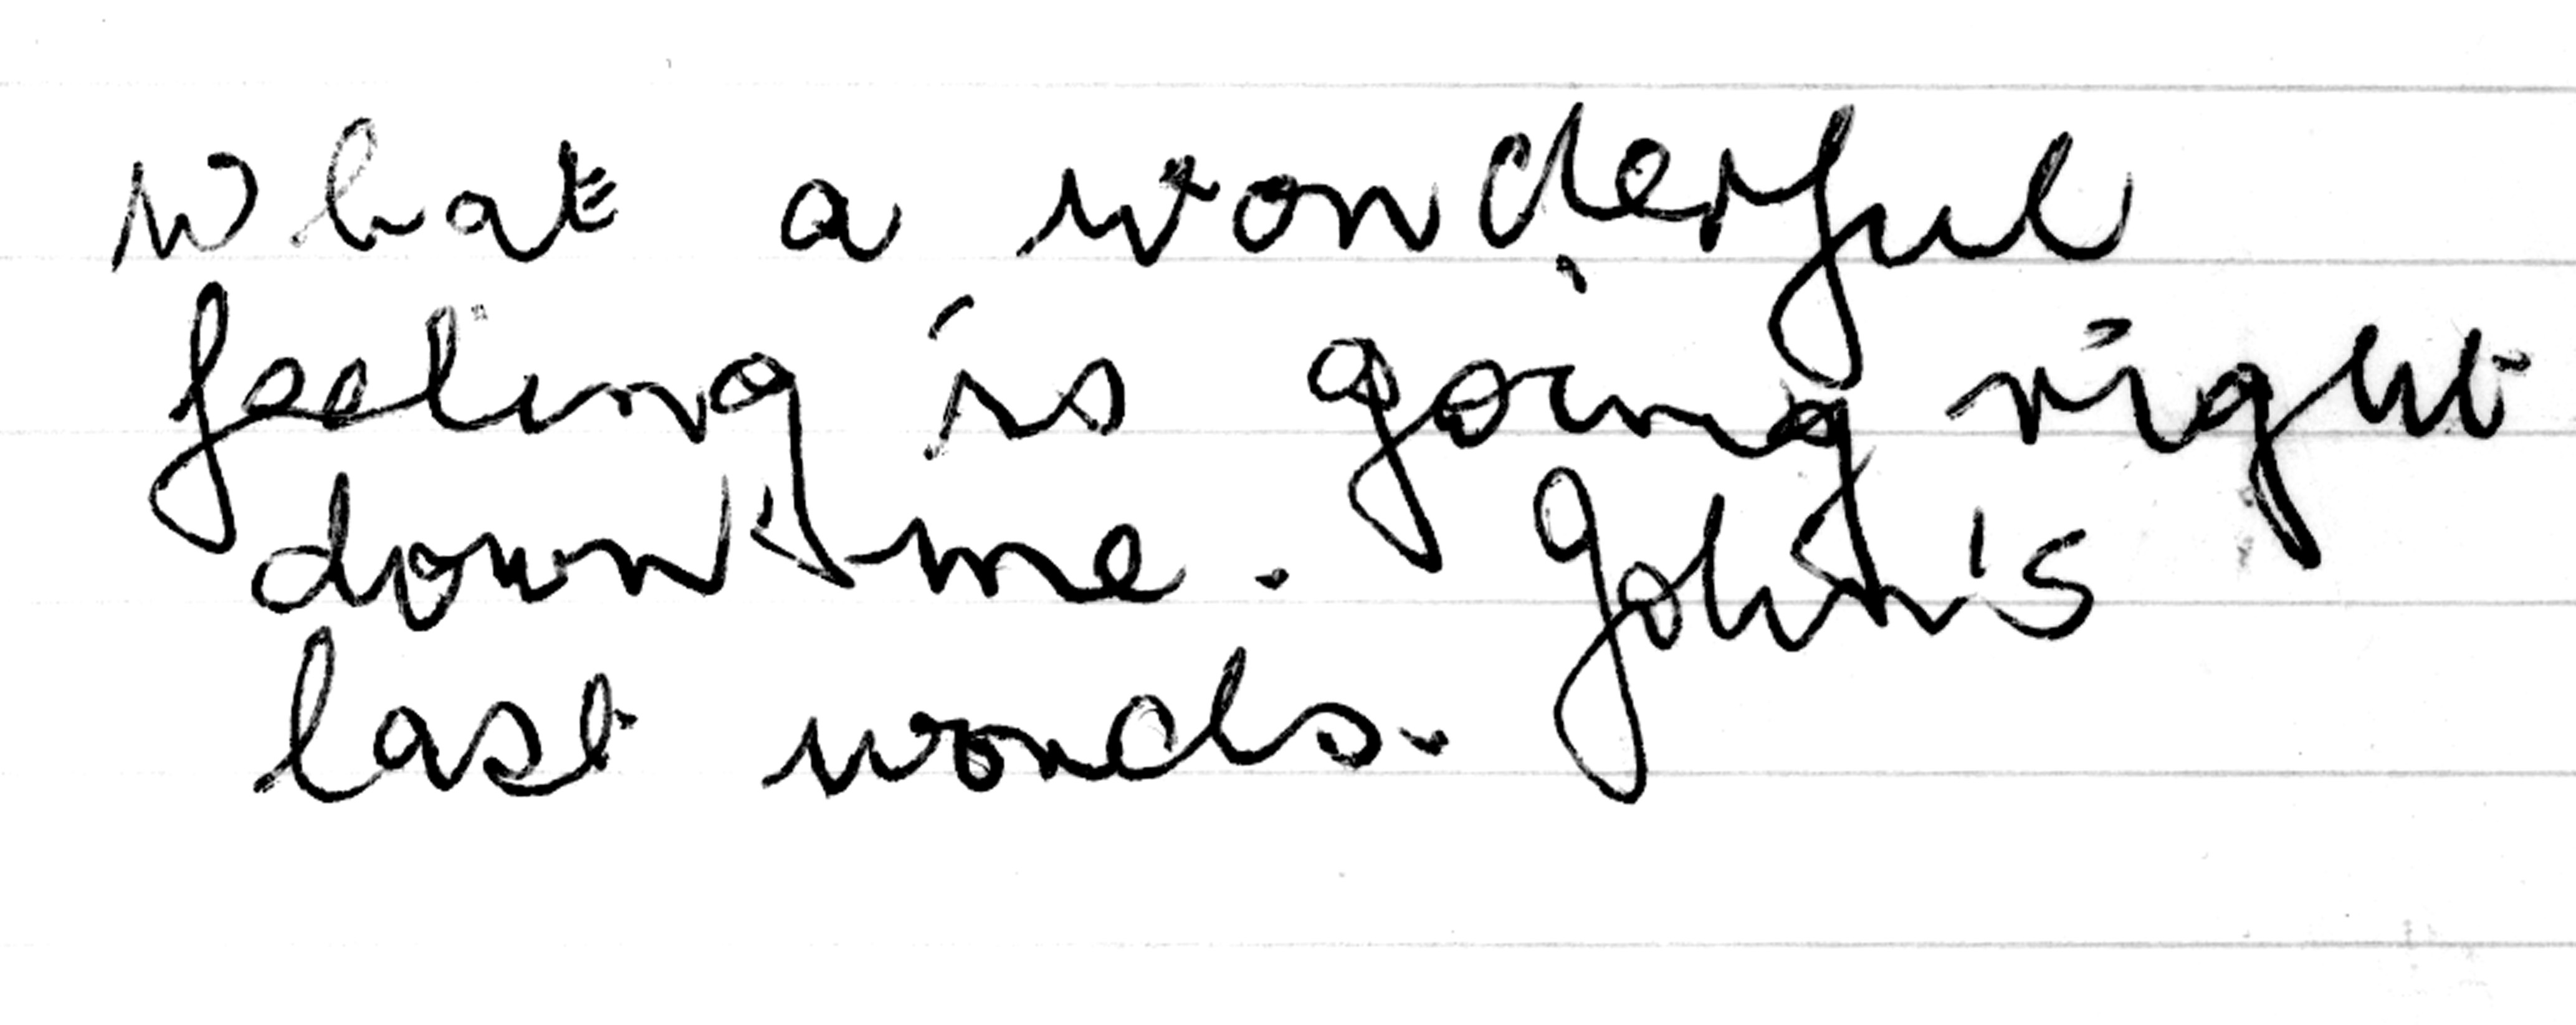 What a wonderful
feeling is going right
down me. John's
last words.